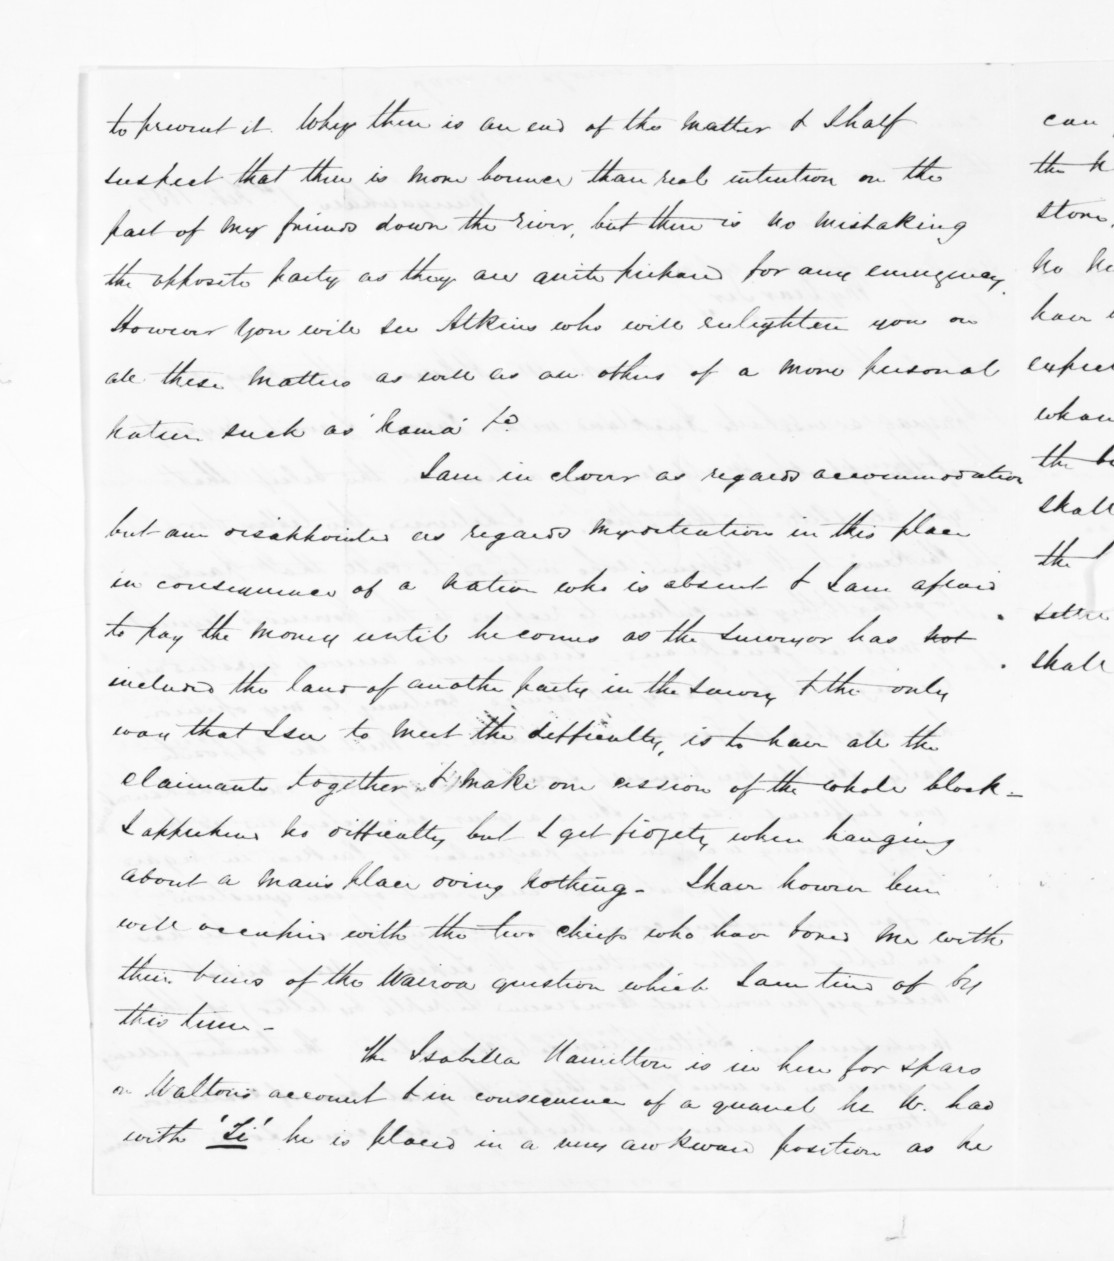 to prevent it. Why then is an end of the matter & I half
suspect that there is more bounce than real intention on the
part of my friends down the river, but there is no mistaking
the opposite party as they are quite prepared for any emergency.
However you will see Atkins who will enlighten you on
all these matters as well as all others of a more personal
nature such as 'kama' &c
I am in clover as regards accommodation
but am disappointed as regards my situation in this place
in consequence of a native who is absent & I am afraid
to pay the money until he comes as the surveyor has not
included the land of another party in the survey & the only
way that I see to meet the difficulty, is to have all the
claimants together & make one cession of the whole block -
I apprehend no difficulty but I get fidgety when hanging
about a man's place doing nothing - I have however been
well occupied with the two chiefs who have bored me with
their views of the Wairoa question which I am tired of by
this time -
The Isabella Hamilton is in here for spars
on Walton's account & in consequence of a quarrel he W. had
with 'Ti' he is placed in a very awkward position as he
can
the
store,
no
have
expec
whom
the
shall
the
settle
shall